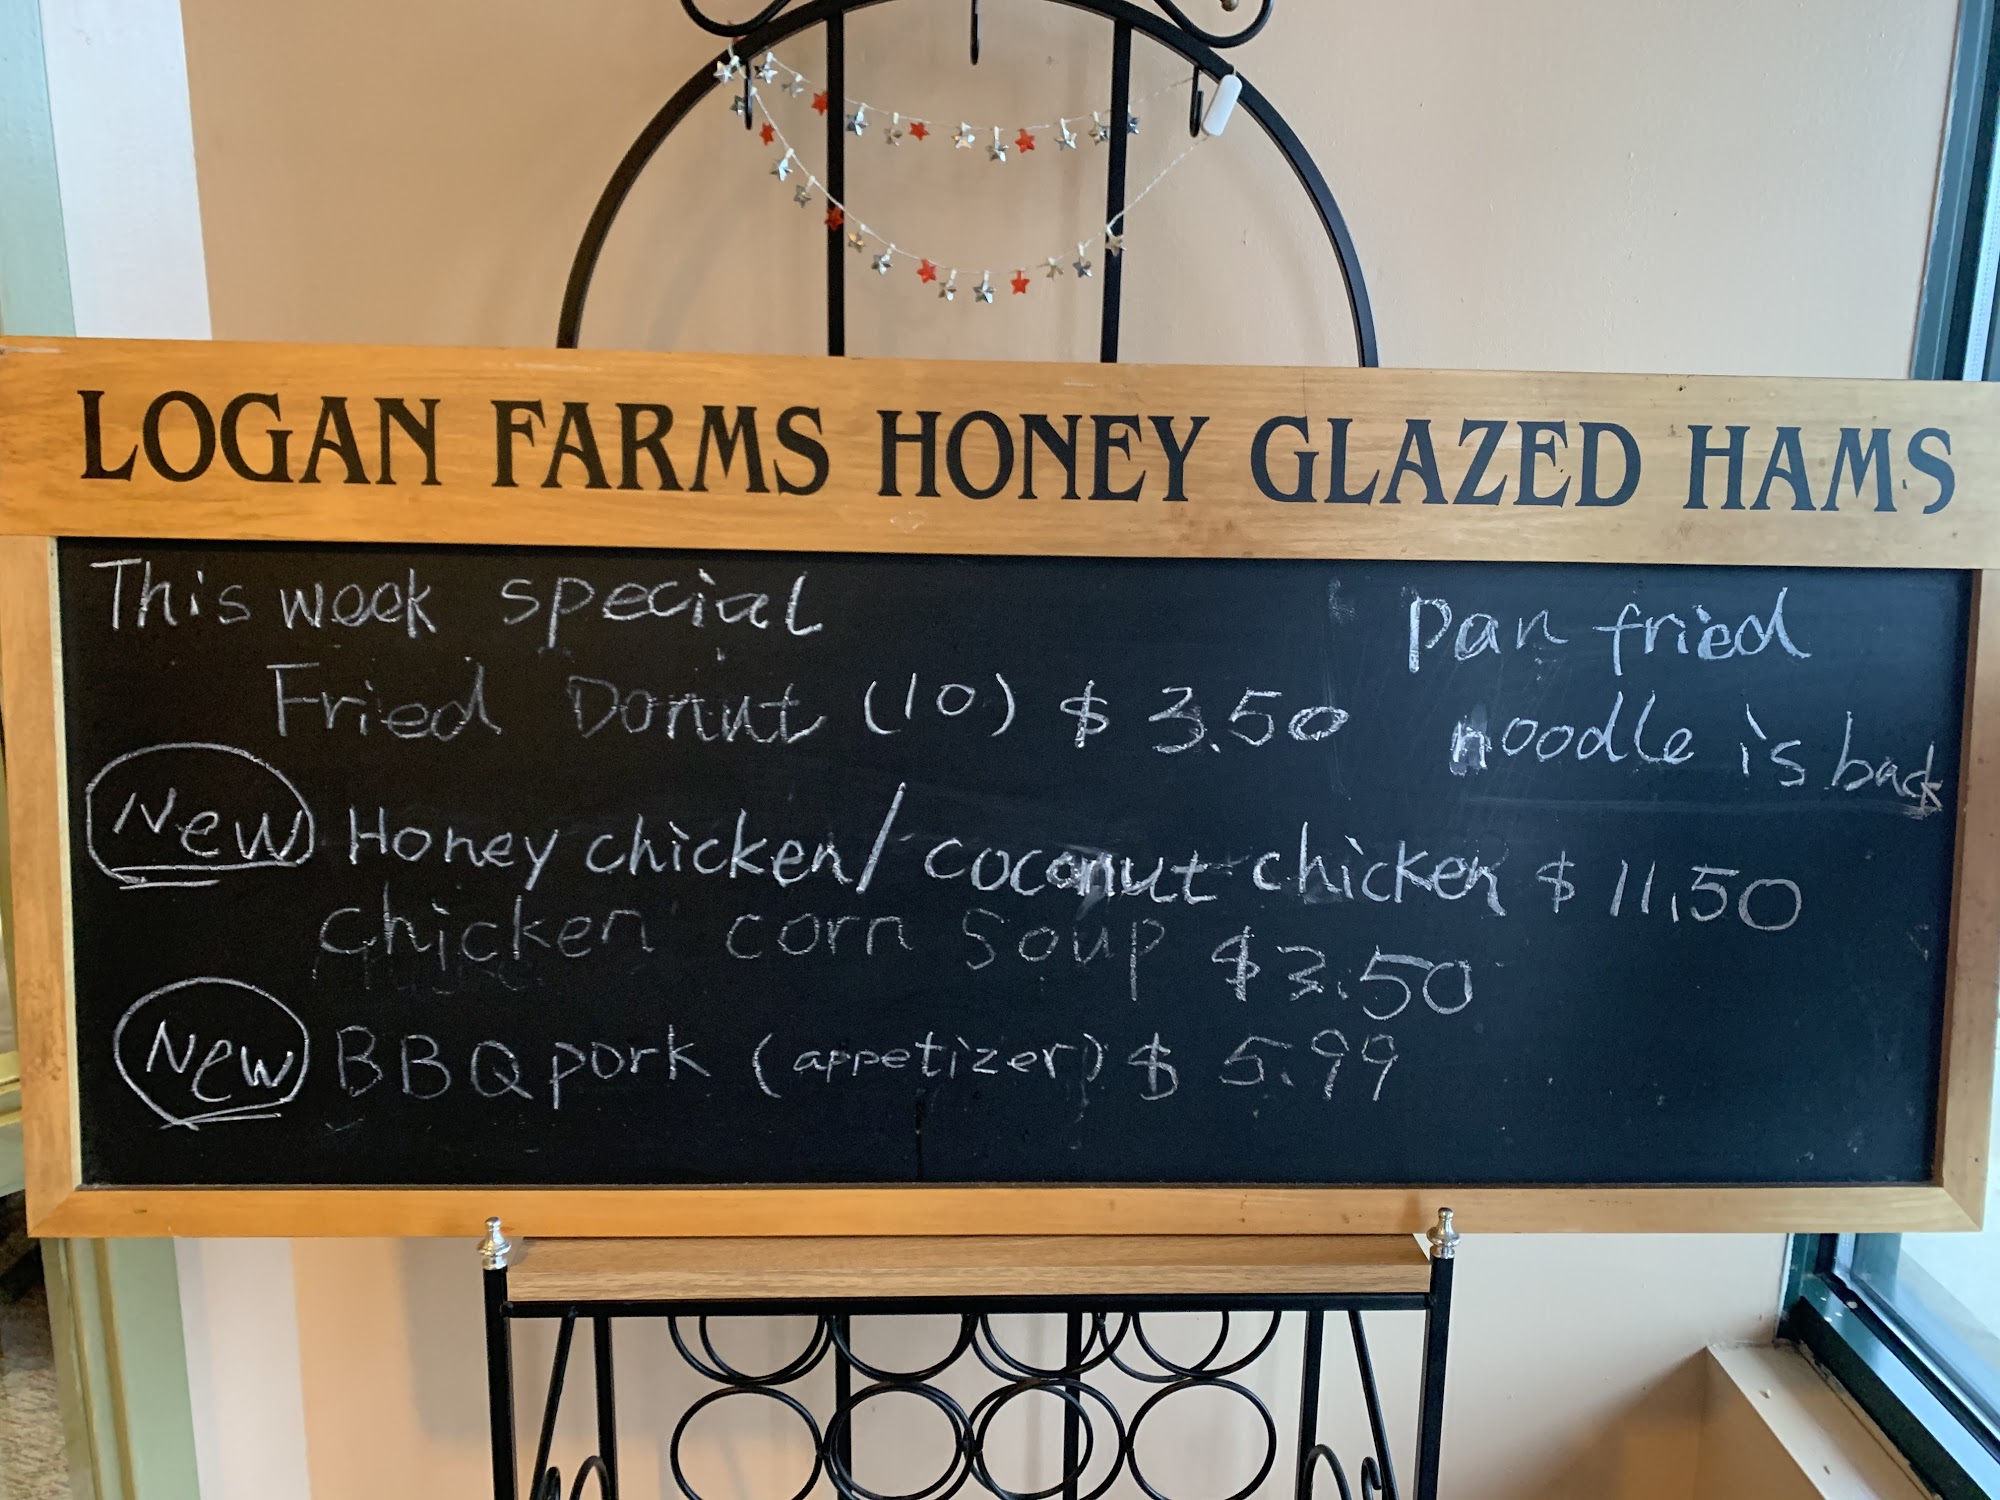 LOGAN FARMS HONEY GLAZED HAMS
This week special
Fried Donut (10) $ 3.50
Pan fried
noodle is back
New Honey chicken/ coconut chicken $ 11.50
chicken corn soup $3.50
New BBQ pork (appetizer) $ 5.99